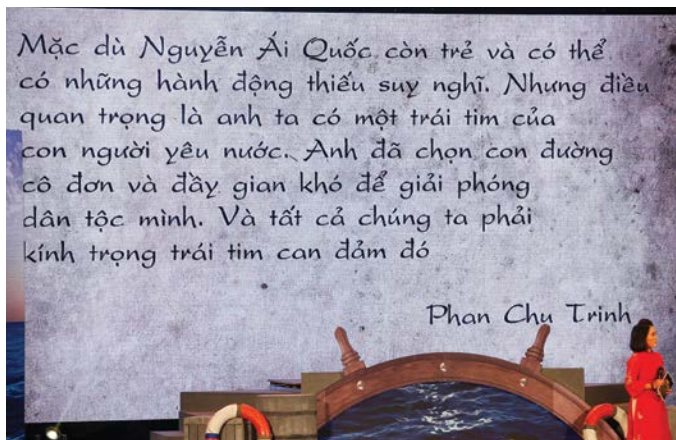 Mặc dù Nguyễn Ái Quốc còn trẻ và có thể
có những hành động thiếu suy nghĩ. Nhưng điều
quan trọng là anh ta có một trái tim của
con người yêu nước. Anh đã chọn con đường
cô đơn và đầy gian khó để giải phóng
dân tộc mình. Và tất cả chúng ta phải
kính trọng trái tim can đảm đó
Phan Chu Trinh